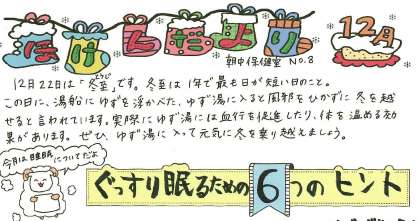 ほけんだより 12月
朝中保健室 No.8
12月22日は「冬至」です。冬至は1年で最も日が短い日のこと。
この日に、湯船にゆずを浮かべた、ゆず湯に入ると風邪をひかずに冬を越
せると言われています。実際にゆず湯には血行を促進したり、体を温める効
果があります。ぜひ、ゆず湯に入って元気に冬を乗り越えましょう。
今月は睡眠についてだよ
ぐっすり眠るための6つのヒント